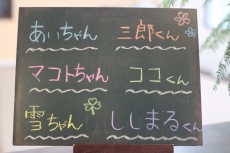 あいちゃん 三郎くん
マコトちゃん ココくん
雪ちゃん ししまるくん